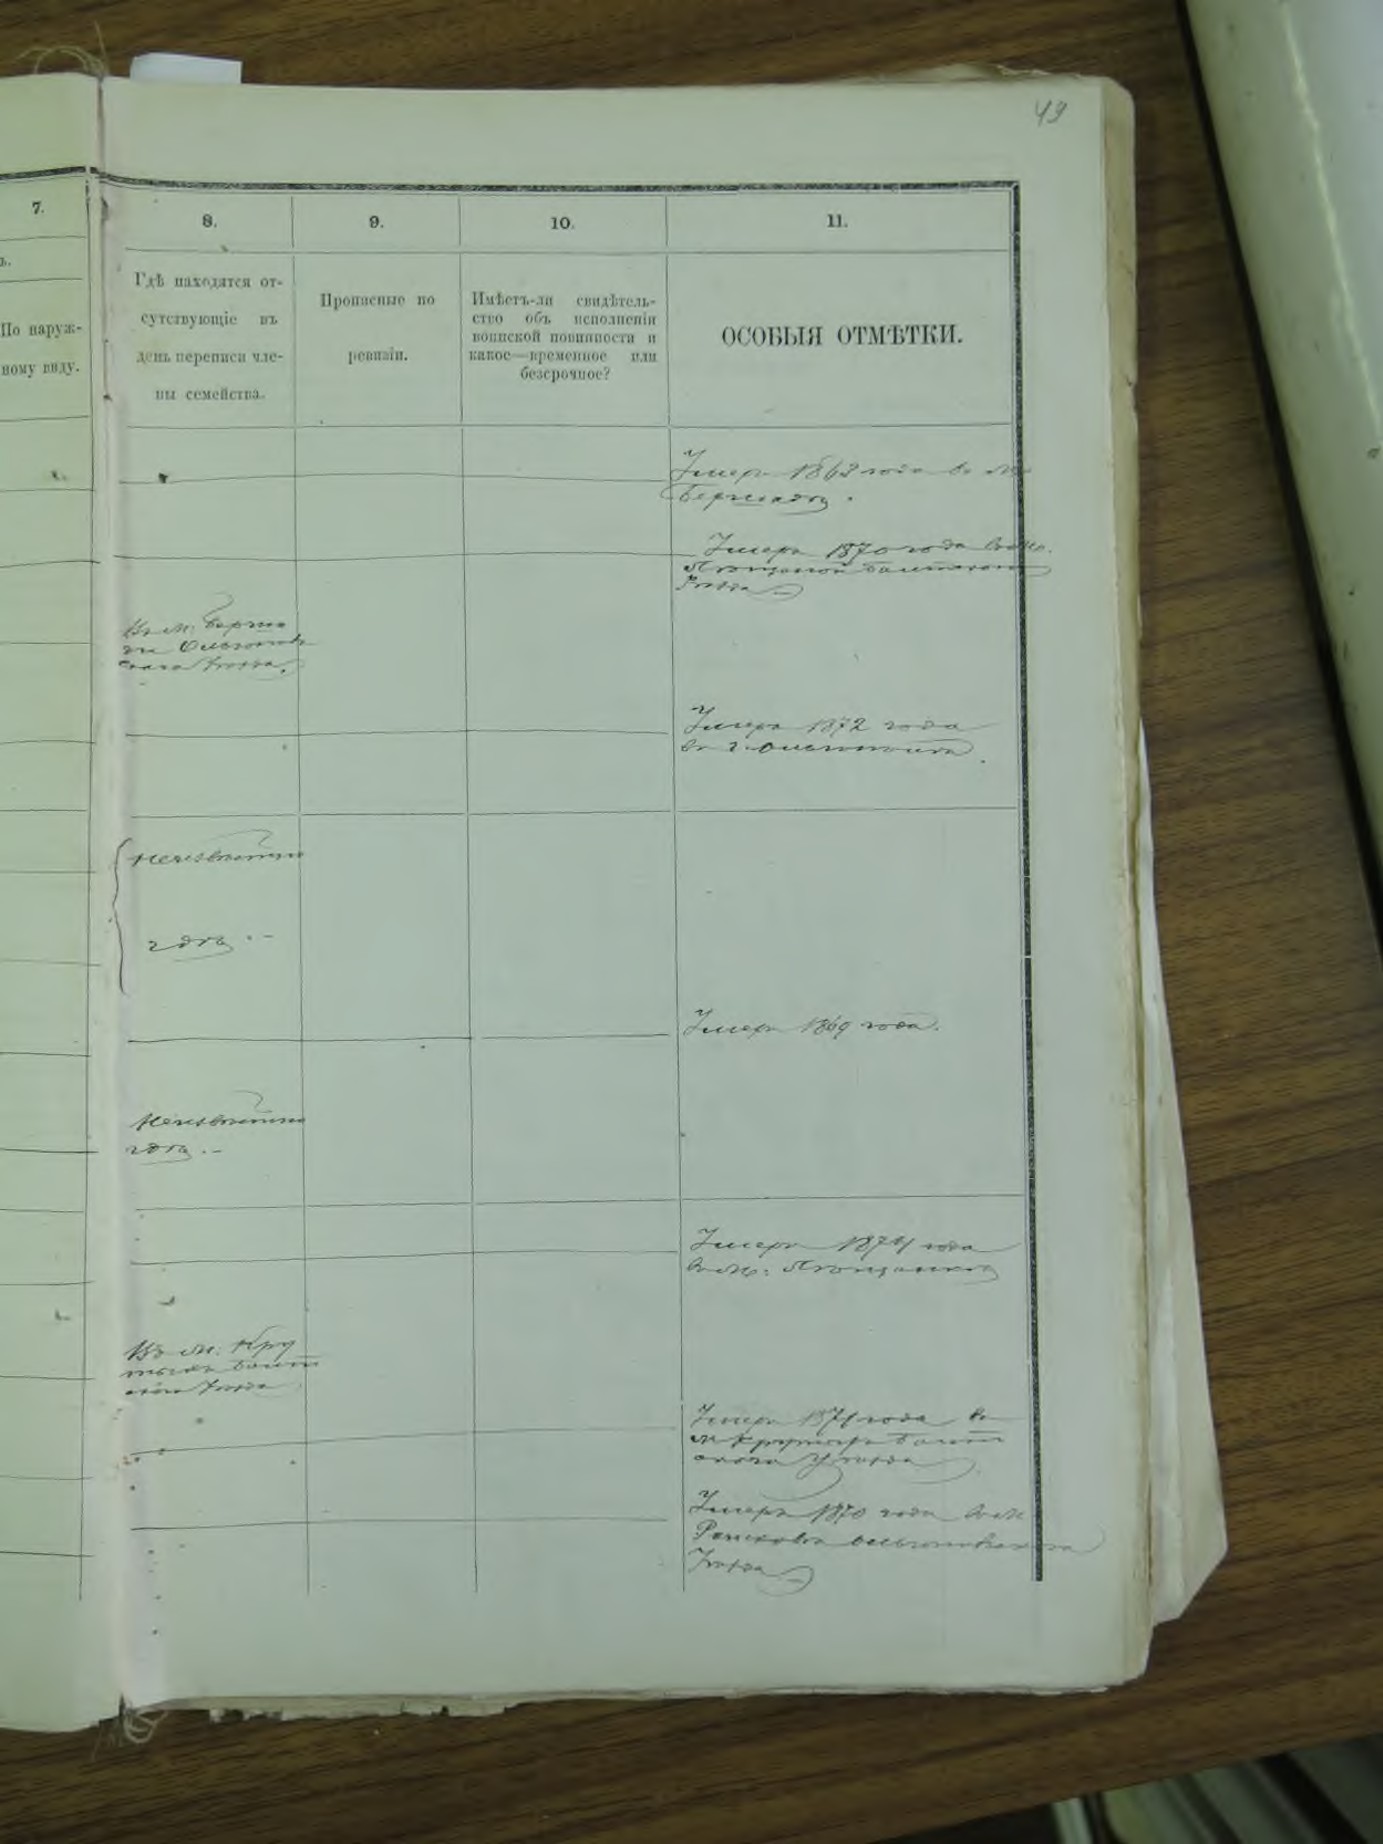 49
7.
8.
9.
10.
11.
ъ.
По наруж-
ному виду.
Гдѣ находятся от-
сутствующіе въ
день переписи чле-
ны семейства.
Прописные по
ревизіи.
Имѣетъ-ли свидѣтель-
ство объ исполненіи
воинской повинности и
какое—временное или
безсрочное?
ОСОБЫЯ ОТМѢТКИ.
Умеръ 1863 года въ м.
Бершади.
Умеръ 1870 года въ м.
Балтскаго
Уѣзда
Въ м. Берша
ди Ольгопол
скаго Уѣзда.
Умеръ 1872 года
въ г. Ольгополѣ.
Неизвѣстно
гдѣ.
Умеръ 1869 года.
Неизвѣстно
гдѣ.
Умеръ 1874 года
въ м.
Въ м. Кру
тыхъ Балт
скаго Уѣзда
Умеръ 1871 года въ
м. Балт
скаго Уѣзда
Умеръ 1870 года въ м.
Ольгопольскаго
Уѣзда